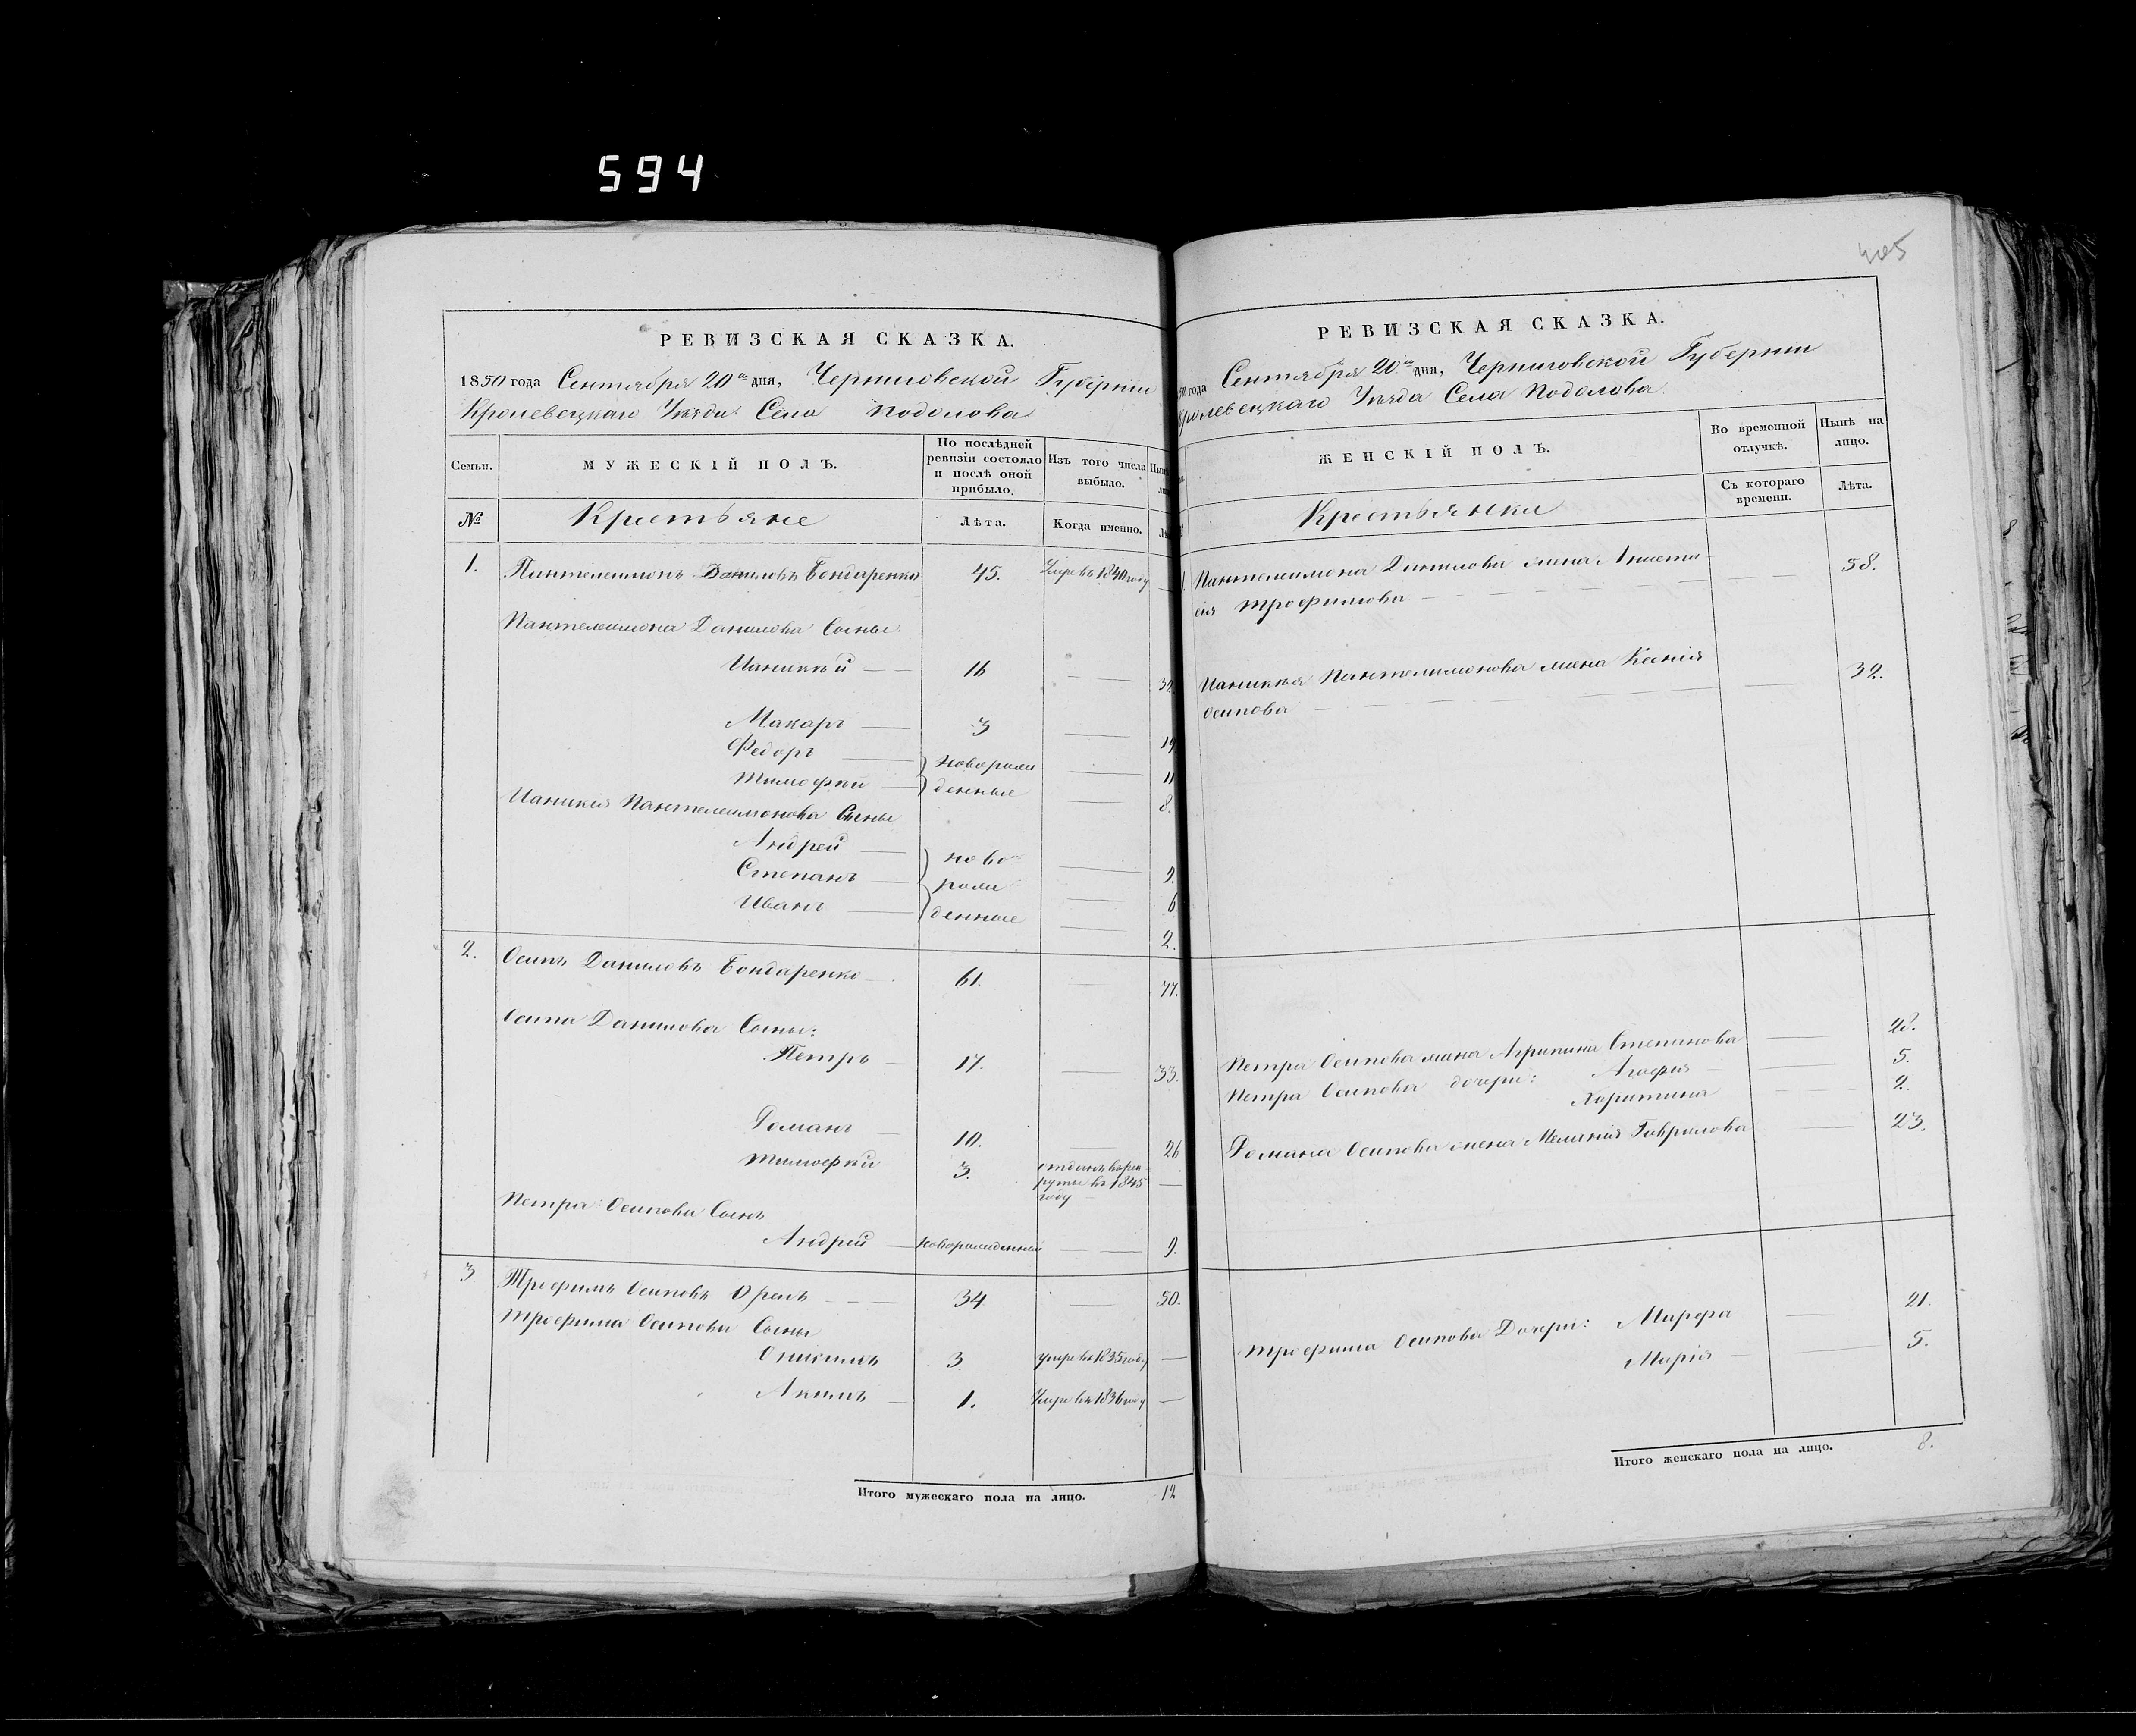 594
405
РЕВИЗСКАЯ СКАЗКА.
1850 года Сентября 20го дня, Черниговской Губерніи
Кролевецкаго Уѣзда Села Подолова
Семьи.
МУЖЕСКІЙ ПОЛЪ.
По послѣдней ревизіи состояло и послѣ оной прибыло.
Изъ того числа выбыло.
№
Крестьяне
Лѣта.
Когда именно.
1. Пантелеимонъ Даниловъ Бондаренко 45. Умре въ 1840 году —
Пантелеимона Данилова Сыны
Ианикѣй — — 16 — — 32
Макаръ — 3 — 19
Федоръ — } новорож — 11
Тимофѣй — } денные — 8.
Ианикія Пантелеимонова Сыны
Андрей — } ново — 9.
Степанъ — } рож — 6
Иванъ — } денные — 2.
2. Осипъ Даниловъ Бондаренко — 61. — 77.
Осипа Данилова Сыны:
Петръ — 17. — 33.
Романъ — 10. — 26
Тимофѣй 3. отданъ въ рек
руты въ 1845 —
году
Петра Осипова Сынъ
Андрей — Новорожденный — — 9.
3 Трофимъ Осиповъ Орелъ — — — 34 — 50.
Трофима Осипова Сыны
3. умре въ 1835 году —
Акимъ — 1. Умре въ 1836 году —
Итого мужескаго пола на лицо. 12
РЕВИЗСКАЯ СКАЗКА.
50 года Сентября 20го дня, Черниговской Губерніи
Кролевецкаго Уѣзда Села Подолова.
ЖЕНСКІЙ ПОЛЪ.
Во временной отлучкѣ.
Нынѣ на лицо.
Крестьянки
Съ котораго времени.
Лѣта.
1. Пантелеимона Данилова жена Анаста — 58.
сія Трофимова — — — — —
Ианикія Пантелимонова жена Ксенія — 32.
Осипова — — — —
Петра Осипова жена Агрипина Степанова — 28.
Петра Осипова дочери: Агафия — — 5.
Харитина — 2.
Романа Осипова жена Меланія Гаврилова — 23.
Трофима Осипова Дочери: Марфа — 21.
Марія — — 5.
Итого женскаго пола на лицо. 8.